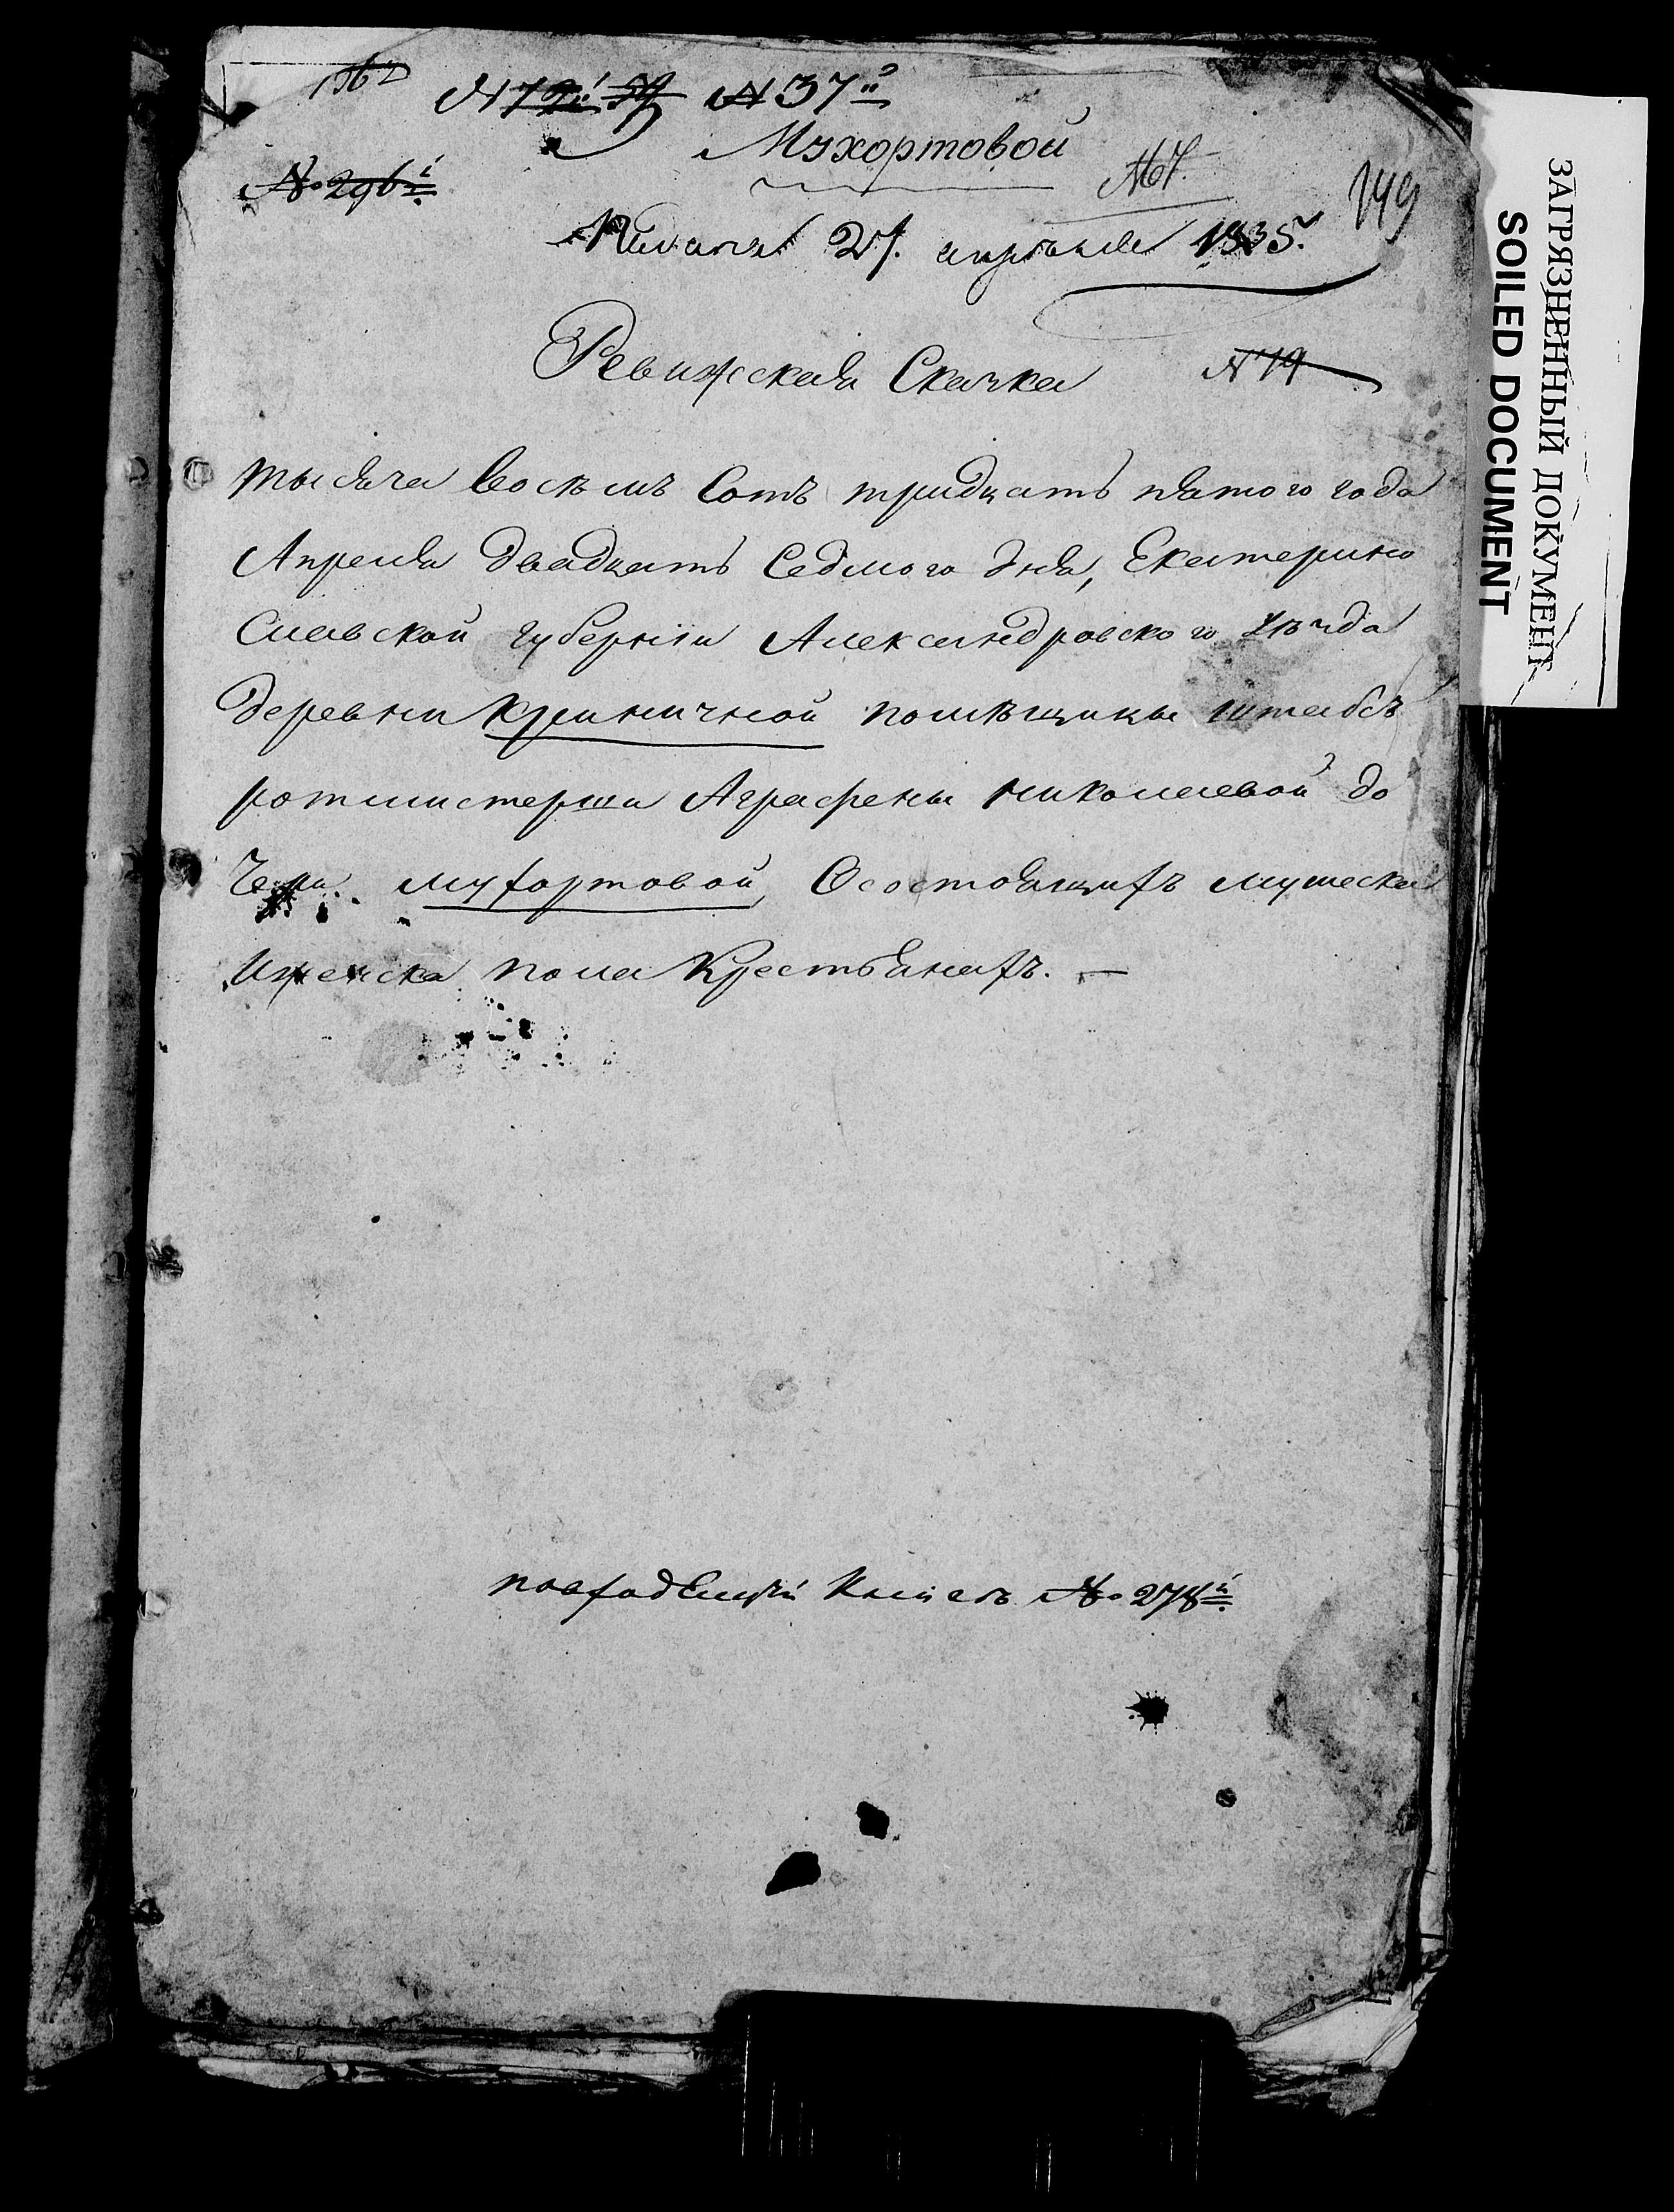 № 37й
Мухортовой
№ 296й
№ 7.
149
27. апреля 1835.
Ревижская Скачка
№ 19
тысяча восѣмъ Сотъ тридцать пятого года
Апреля двадцать Седмого дня, Екатерино
Славской губерніи Александровского уѣзда
деревни Криничной помѣщицы штабсъ
ротмистерши Аграфены николаевой до
Чери мухортовой, Осостоящихъ мужеска
Иженска пола Крестьянахъ. —
повходящей Книге №278й
ЗАГРЯЗНЕННЫЙ ДОКУМЕНТ
SOILED DOCUMENT